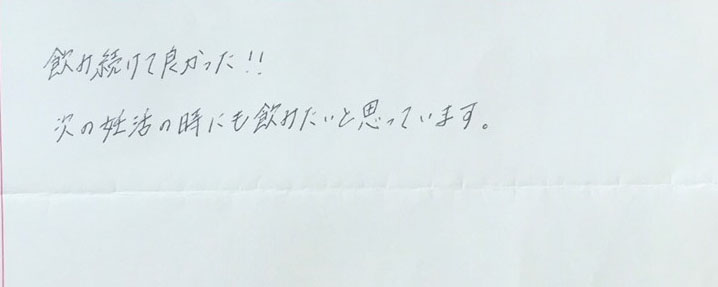 飲み続けて良かった!!
次の妊活の時にも飲みたいと思っています。